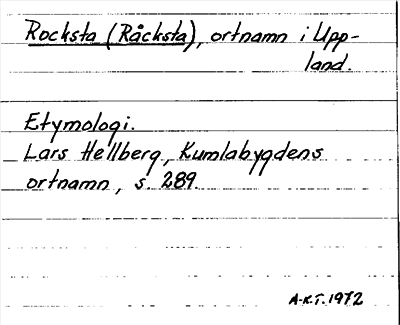 Rocksta (Råcksta), ortnamn i Upp-
land.
Etymologi.
Lars Hellberg, Kumlabygdens
ortnamn, s. 289.
A-K.T. 1972